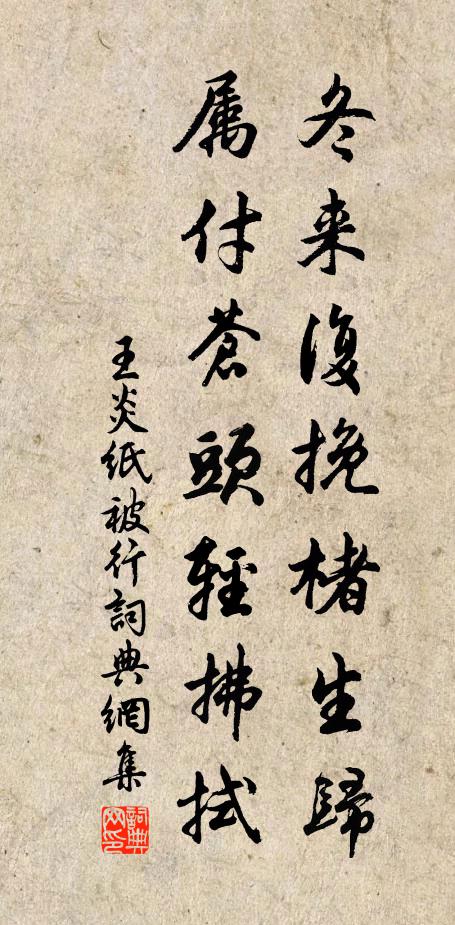 冬来復挽楮生歸
属付蒼頭輕拂拭
王炎紙被行詞典網集
詞典網印